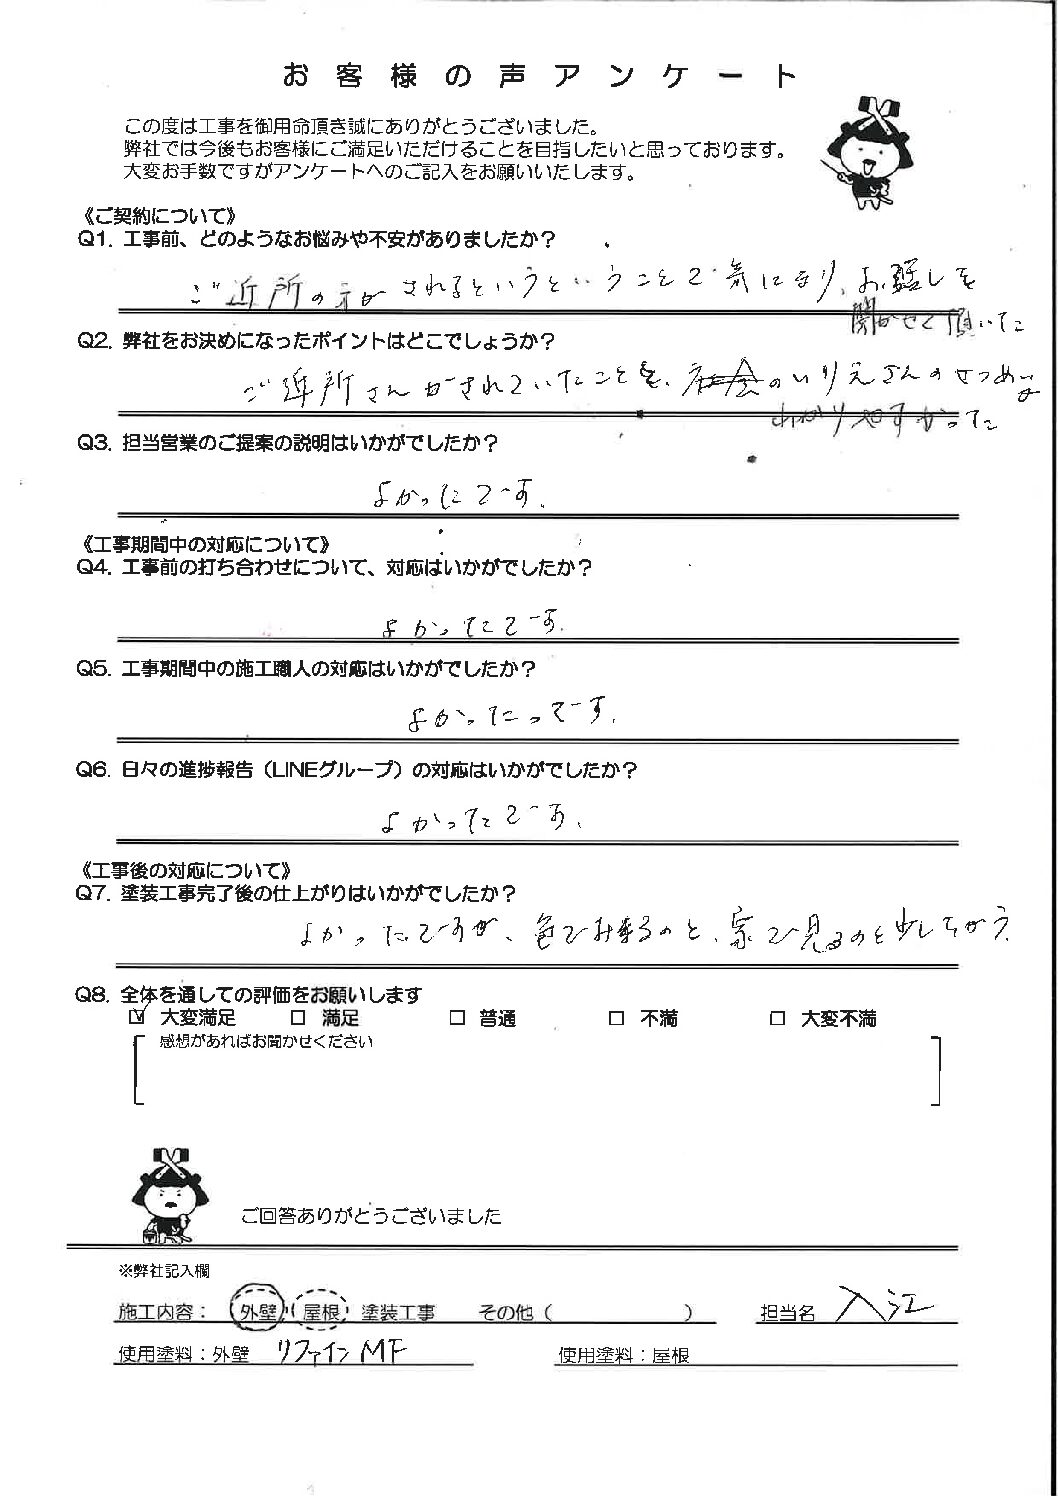 お客様の声アンケート
この度は工事を御用命頂き誠にありがとうございました。
弊社では今後もお客様にご満足いただけることを目指したいと思っております。
大変お手数ですがアンケートへのご記入をお願いいたします。
《ご契約について》
Q1. 工事前、どのようなお悩みや不安がありましたか?
ご近所の方がされるというということで気になり、お話しを
聞かせて頂いた
Q2. 弊社をお決めになったポイントはどこでしょうか?
ご近所さんがされていたことと、のいりえさんのせつめいが
わかりやすかった
Q3. 担当営業のご提案の説明はいかがでしたか?
よかったです。
《工事期間中の対応について》
Q4. 工事前の打ち合わせについて、対応はいかがでしたか?
よかったです.
Q5. 工事期間中の施工職人の対応はいかがでしたか?
よかったってす.
Q6. 日々の進捗報告(LINEグループ)の対応はいかがでしたか?
よかったです.
《工事後の対応について》
Q7. 塗装工事完了後の仕上がりはいかがでしたか?
よかったですが、色で見るのと、家で見るのと少しちがう.
Q8. 全体を通しての評価をお願いします
☑ 大変満足 □ 満足 □ 普通 □ 不満 □ 大変不満
感想があればお聞かせください
ご回答ありがとうございました
※弊社記入欄
施工内容: 外壁・屋根 塗装工事 その他( ) 担当名 入江
使用塗料:外壁 リファインMF 使用塗料:屋根